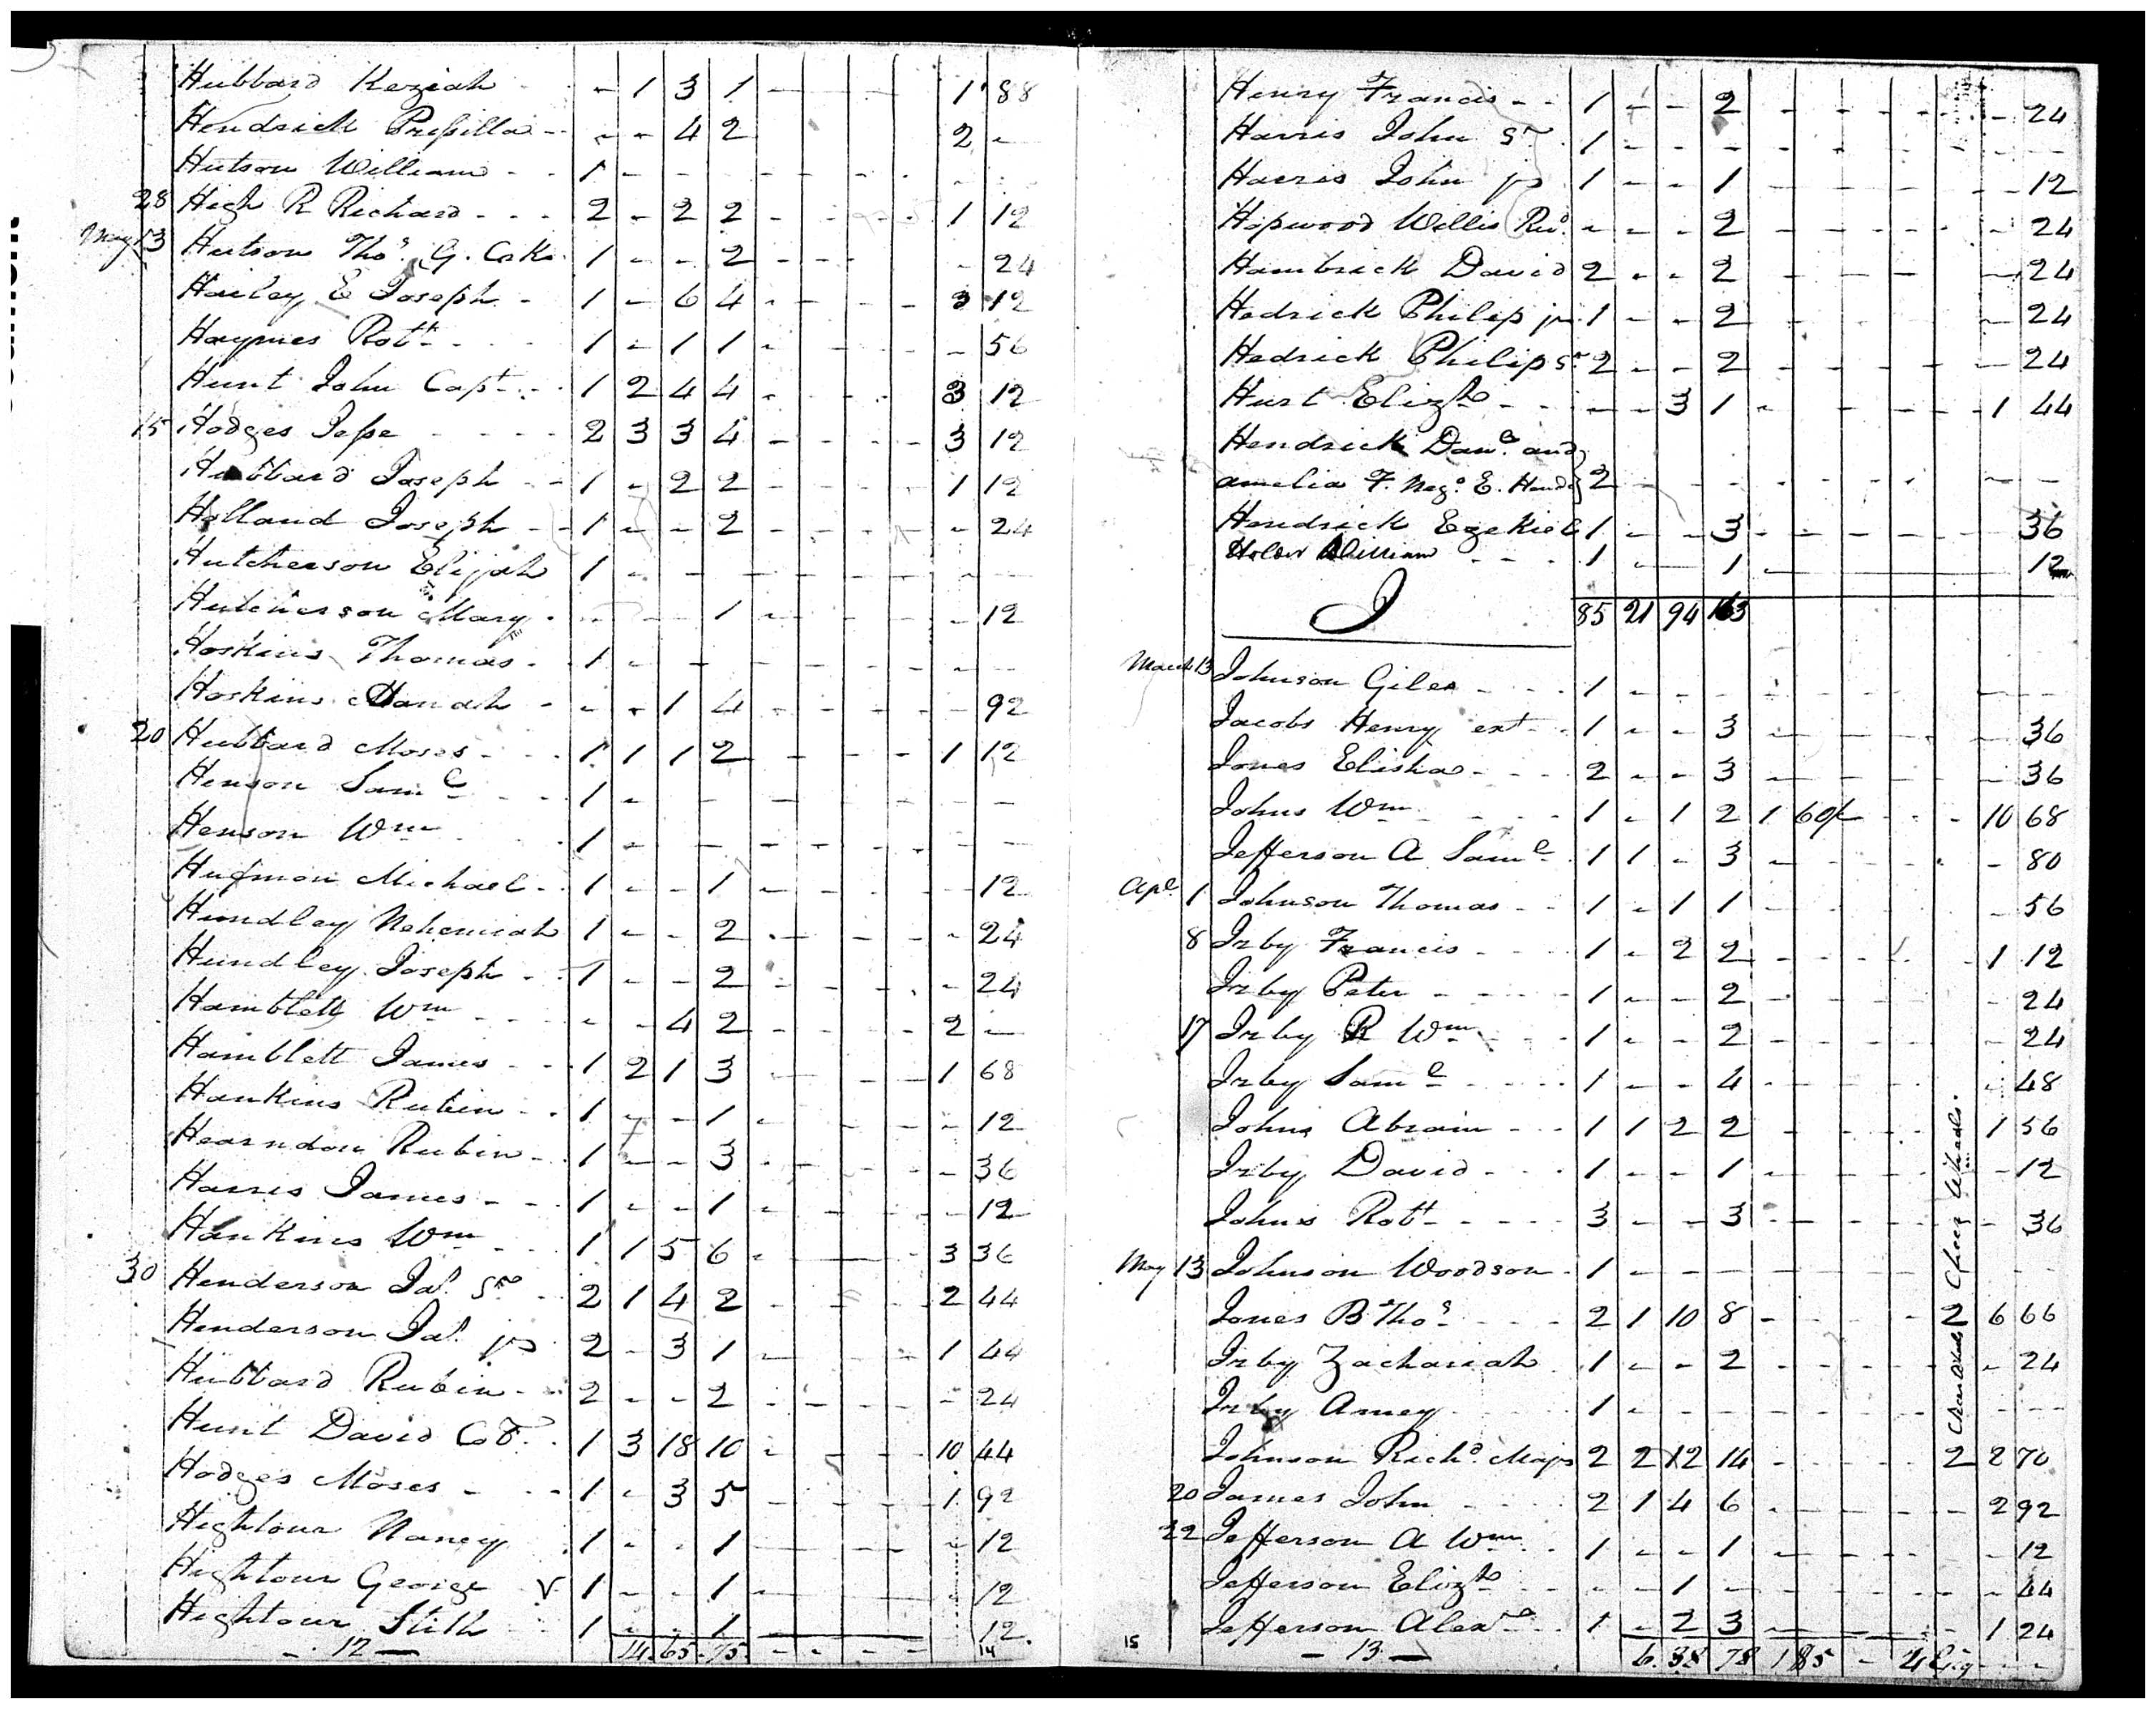 Hubbard Keziah - - 1 3 1 - - - 1 88
Hendrick Prissilla - - - 4 2 2 -
Hutson William - - 1 - - - - - - - -
28 High R Richard - - - 2 - 2 2 - - - - 1 12
May 13 Hutson Thos. G. Crks 1 - - 2 - - - 24
Hailey E Joseph - 1 - 6 4 - - - - 3 12
Haymes Robt - - 1 - 1 1 - - - - - 56
Hunt John Capt. - - 1 2 4 4 - - - - 3 12
15 Hodges Jesse - - - - 2 3 3 4 - - - - 3 12
Hubbard Joseph - - 1 - 2 2 - - - - 1 12
Holland Joseph - - 1 - - 2 - - - - - 24
Hutcherson Elijah 1 - - - - - - - - -
Hutcherson Mary - - - - 1 - - - - - 12
Hoskins Thomas - 1 - - - - - - - - -
Hoskins Hanah - - - 1 4 - - - - - 92
20 Hubbard Moses - - - 1 1 1 2 - - - - 1 12
Henson Saml - - 1 - - - - - - - -
Henson Wm - 1 - - - - - - - - -
Hufmon Michael - - 1 - - 1 - - - - - 12
Hundley Nehemiah 1 - - 2 - - - - - 24
Hundley Joseph - - 1 - - 2 - - - - - 24
Hamblett Wm - - - - - 4 2 - - - - 2 -
Hamblett James - - 1 2 1 3 - - - - 1 68
Hankins Rubin - - 1 - - 1 - - - - - 12
Hearndon Rubin - 1 - - 3 - - - - - 36
Harris James - - - 1 - - 1 - - - - - 12
Hankins Wm - - 1 1 5 6 - - - - 3 36
30 Henderson Jas. Sr - 2 1 4 2 - - - - 2 44
Henderson Jas. jr 2 - 3 1 - - - - 1 44
Hubbard Rubin - - 2 - - 2 - - - - - 24
Hunt David - 1 3 18 10 - - - - 10 44
Hodges Moses - - - 1 - 3 5 - - - - 1 92
Hightour Nancy . 1 - - 1 - - - - - 12
Hightour George V 1 - - 1 - - 12
Hightour Stith 1 - - 1 - 12
- 12 - 14 65 75 - - - - 14
Henry Francis - - 1 - - 2 - - - - - - 24
Harris John Sr 1 - - - - - - - - - -
Harris John jr 1 - - 1 - - - - - - 12
Hopwood Willis Revd. - - - 2 - - - - - - 24
Hambrick David 2 - - 2 - - - - 24
Hedrick Philip jr 1 - - 2 - - - - 24
Hedrick Philip Sr 2 - - 2 - - - - 24
Hurt Elizth - - - - 3 1 - - - - - 1 44
Hendrick Danl. and
amelia F. Nego. E. Hend 2 - - - - - - - - - -
Hendrick Ezekiel 1 - - 3 - - - - - - 36
Holder William - - - 1 - - 1 - 12
85 21 94 163
J
March 13 Johnson Giles - - - 1 - - - - - - - - - -
Jacobs Henry ext - - 1 - - 3 - - - - - - 36
Jones Elisha - - - - 2 - - 3 - - - - - - 36
Johns Wm - - - - 1 - 1 2 1 60/ - - - 10 68
Jefferson A Saml - 1 1 - 3 - - - - - - 80
Apl. 1 Johnson Thomas - - 1 - 1 1 - - - - - - 56
8 Irby Francis - - - - 1 - 2 2 - - - - - 1 12
Irby Peter - - - - 1 - - 2 - - - - - - 24
17 Irby R Wm - - - 1 - - 2 - - - - - - 24
Irby Saml - - - - 1 - - 4 - - - - - - 48
Johns Abram - - - 1 1 2 2 - - - - 1 56
Irby David - - - - 1 - - 1 - - - - - - 12
Johns Robt - - - - 3 - - 3 - - - - - - 36
May 13 Johnson Woodson - 1 - - - - - - - - -
Jones B Thos - - - - 2 1 10 8 - - - - 2 6 66
Irby Zachariah 1 - - 2 - - - - - - 24
Irby Amey 1 - - - - - - - - - -
Johnson Richd. Majr 2 2 12 14 - - - - 2 2 70
20 James John - - - 2 1 4 6 - - - - - 2 92
22 Jefferson A Wm - - 1 - - 1 - - - - - - 12
Jefferson Elizth - - - - 1 - - - - - - - 44
Jefferson Alexr - - 1 - 2 3 - - - - - 1 24
15 - 13 - 6 38 78 1 85 - 4 Gig - - -
Wheels